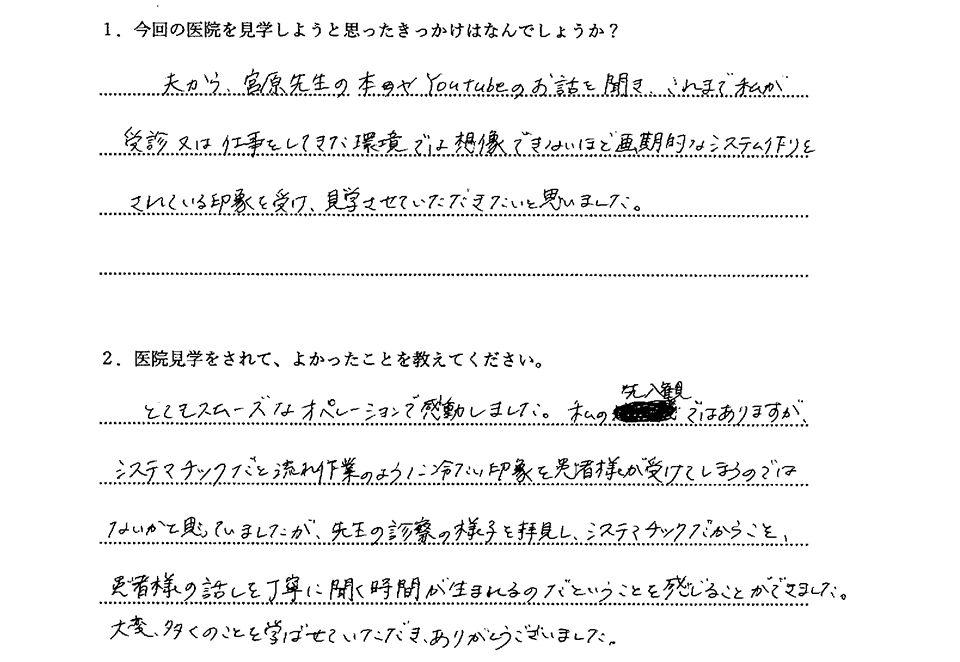 1．今回の医院を見学しようと思ったきっかけはなんでしょうか？
夫から、宮原先生の本やYoutubeのお話を聞き、これまで私が
受診又は仕事をしてきた環境では想像できないほど画期的なシステム作りを
されている印象を受け、見学させていただきたいと思いました。
2．医院見学をされて、よかったことを教えてください。
先入観
とてもスムーズなオペレーションで感動しました。私のではありますが、
システマチックだと流れ作業のように冷たい印象を患者様が受けてしまうのでは
ないかと思っていましたが、先生の診察の様子を拝見し、システマチックだからこそ、
患者様の話しを丁寧に聞く時間が生まれるのだということを感じることができました。
大変、多くのことを学ばせていただき、ありがとうございました。